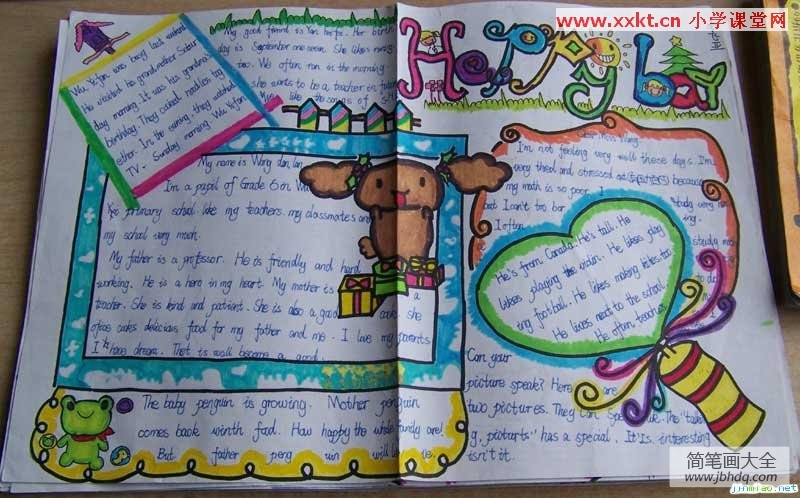 www.xxkt.cn 小学课堂网
Happy
Wu Yifan was busy last weekend
He visited his grandmother
day morning. It was his grandma's
birthday. They cooked noodles tog
ether. In the evening, they watched
TV. Sunday morning, Wu Yifan
My good friend is
day is September
too. We often run in the morning.
she wants to be a teacher in future
like the songs of
My name is Wang
I'm a pupil of Grade 6 on Wu
primary school like my teachers my classmates and
my school very much.
My father is a professor. He is friendly and hard
working. He is a hero in my heart. My mother is a
teacher. She is kind and patient. She is also a good cook. she
cooks delicious food for my father and me. I love my parents
I have dream. That is well become a good
The baby penguin is growing. Mother penguin
comes back winth food. How happy the whole family are!
But father peng win will
Dear Miss Wang.
I'm not feeling very well these days. I'm
very tired and stressed because
my math is so poor. I study very
but I can't too
I often
study
He's from Canada. He's tall. He
likes playing the violin. He likes play
ing football. He likes making kites too
He lives next to the school.
He often teaches
Can your
picture speak? Here are
two pictures. They can The "talkin
g, pictures" has a special. It Is interesting
isn't it.
简笔画大全
www.jbhdq.com